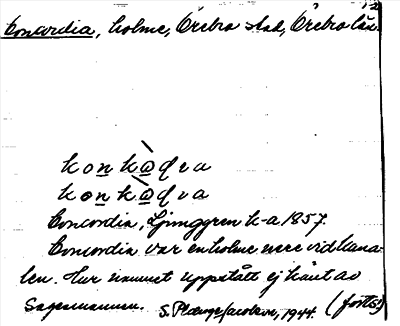 Concordia, holme, Örebro stad, Örebro län.
konkǫdva
konkǫdva
Concordia, Ljunggren k-a 1857.
Concordia var en holme nere vid kana-
len. Hur namnet uppstått ej känt av
sagesmannen. 1944. (forts.)